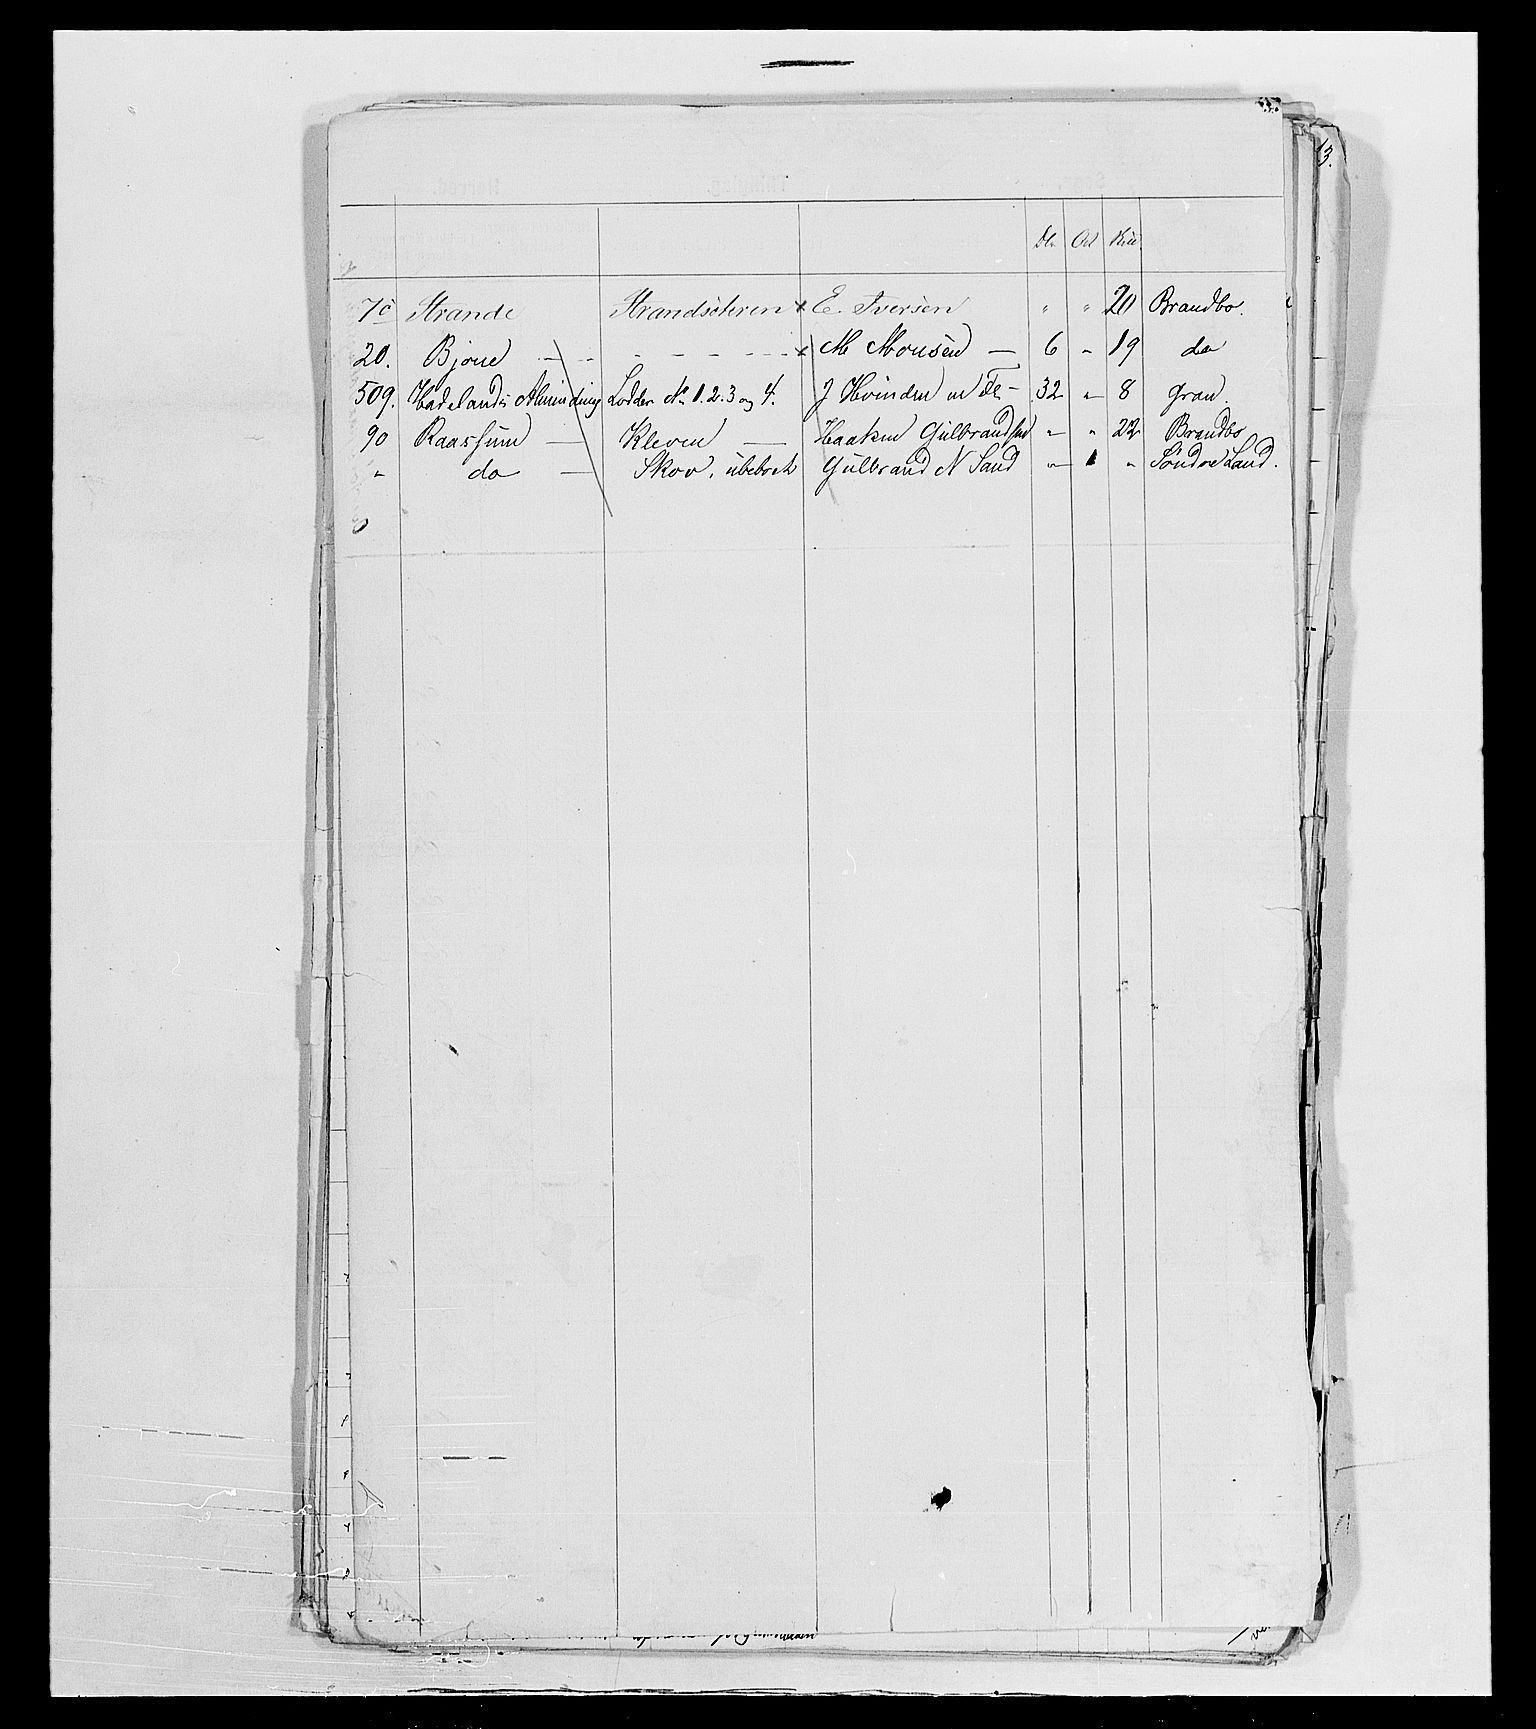 13.
Dlr Ort Skill
7c Strande Strandsæteren x E. Iversen " " 20 Brandbo.
20. Bjone — - - - - - - x M Monsen — 6 " 19 do
509. Hadelands Alminding Lodder No 1. 2. 3 og 4. J Hvinden m Fl — 32 " 8 Gran.
90 Raassum — Kleven — Haaken Gulbrandsen " " 22 Brandbo
" do — Skov, ubeboet Gulbrand N Sand " 1 " Søndre Land.